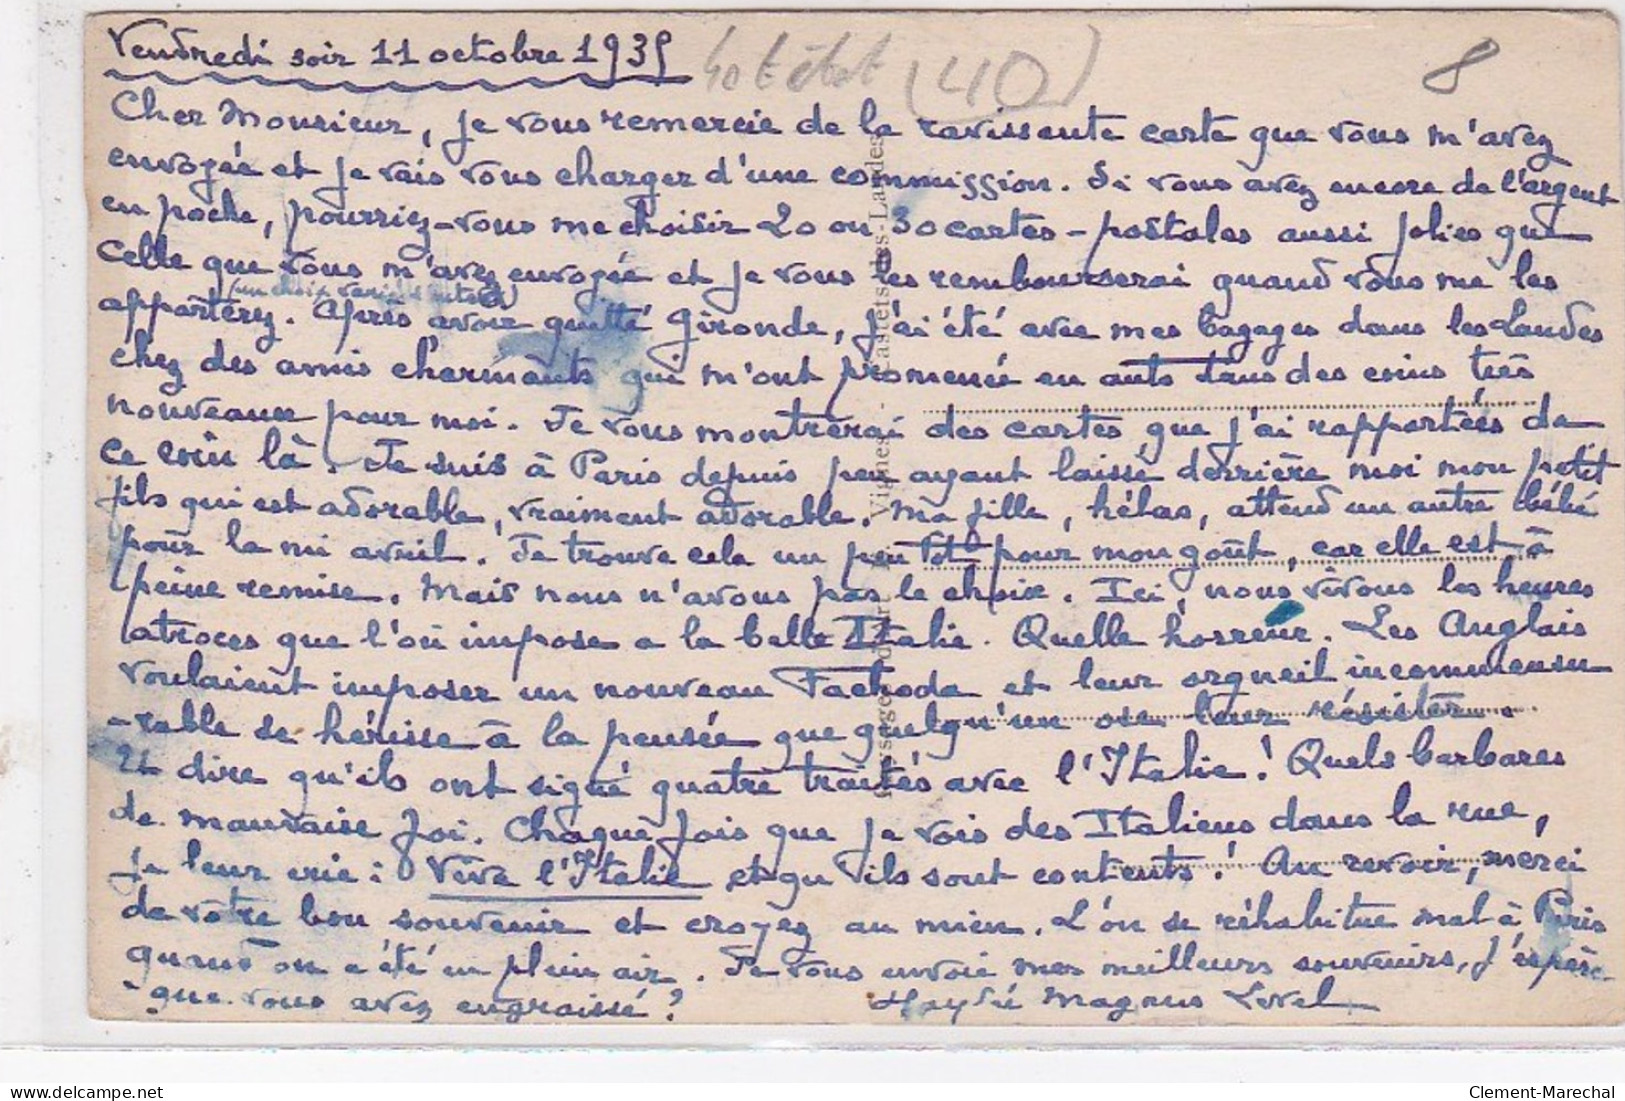 Vendredi soir 11 octobre 1935
(40) 8
Cher Monsieur, je vous remercie de la ravissante carte que vous m'avez
envoyée et je vais vous charger d'une commission. Si vous avez encore de l'argent
en poche, pourriez-vous me choisir 20 ou 30 cartes-postales aussi jolies que
celle que vous m'avez envoyée et je vous les rembourserai quand vous me les
(un choix varié
apporterez. Après avoir quitté Gironde, j'ai été avec mes bagages dans les Landes
chez des amis charmants qui m'ont promenée en auto dans des coins très
nouveaux pour moi. Je vous montrerai des cartes que j'ai rapportées de
ce coin là. Je suis à Paris depuis peu ayant laissé derrière moi mon petit
fils qui est adorable, vraiment adorable. Ma fille, hélas, attend un autre bébé
pour la mi avril. Je trouve cela un peu tôt pour mon goût, car elle est à
peine remise. Mais nous n'avons pas le choix. Ici, nous vivons les heures
atroces que l'on impose a la belle Italie. Quelle horreur. Les Anglais
voulaient imposer un nouveau Fachoda et leur orgueil incommensu
-rable se hérisse à la pensée que quelqu'un ose leur résister.
Et dire qu'ils ont signé quatre traités avec l'Italie! Quels barbares
de mauvaise foi. Chaque fois que je vois des Italiens dans la rue,
je leur crie: Vive l'Italie et qu'ils sont contents! Au revoir, merci
de votre bon souvenir et croyez au mien. L'on se réhabitue mal à Paris
quand on a été en plein air. Je vous envoie mes meilleurs souvenirs, j'espère
que vous avez engraissé? Magnus
Paysages d'Art - Vignes - Castets-des-Landes
Clement-Marechal